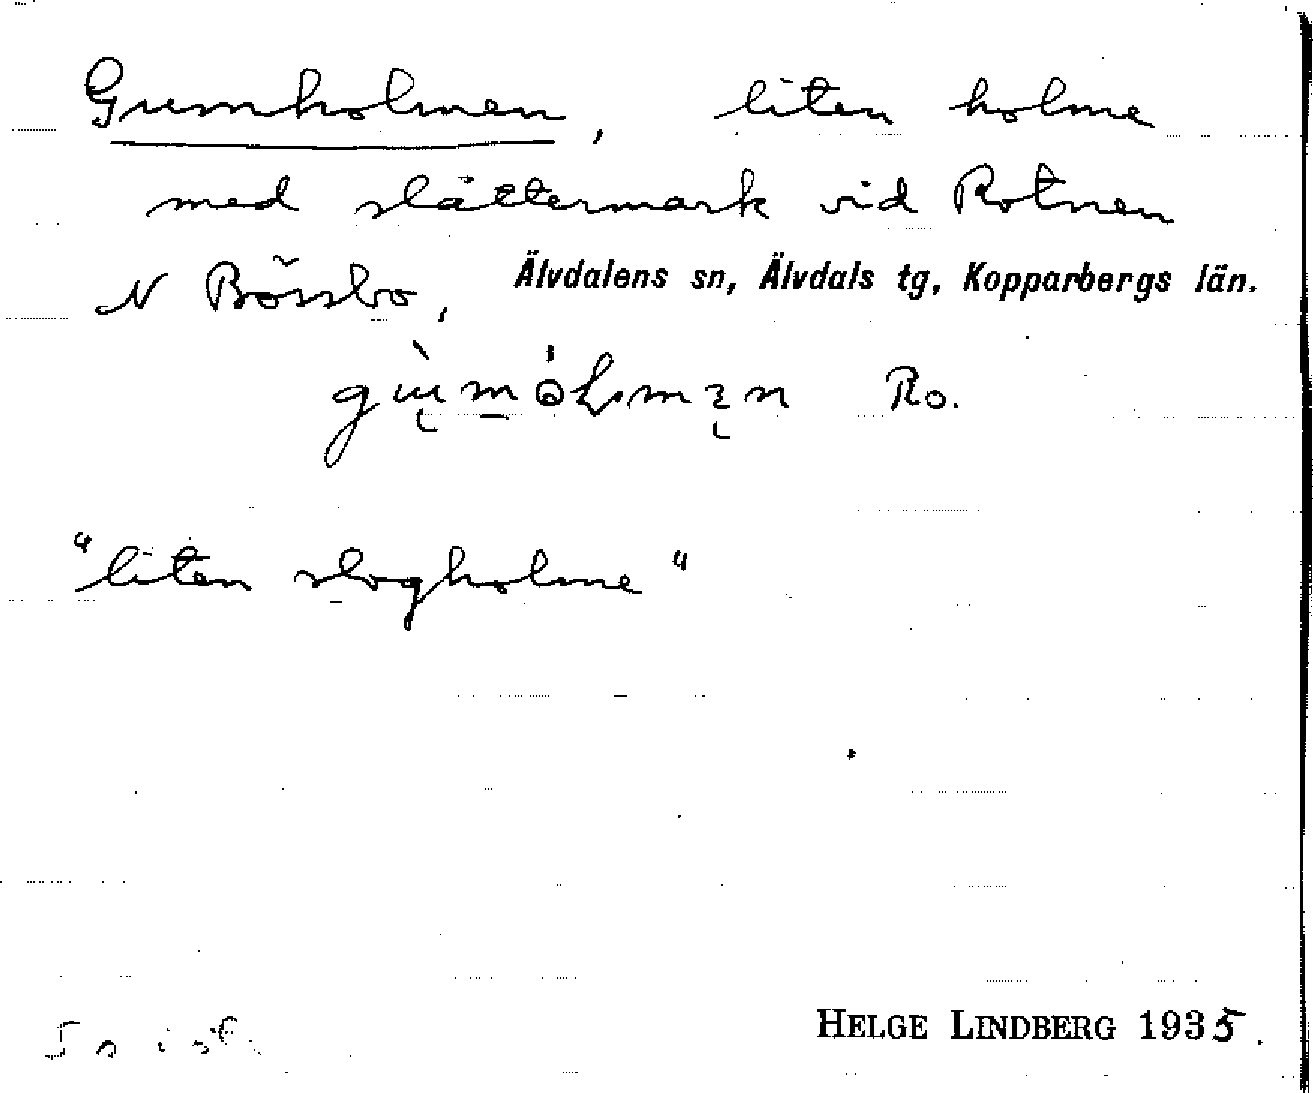 Gumholmen, liten holme
med slåttermark vid Rotnen
N Börsbo, Älvdalens sn, Älvdals tg, Kopparbergs län.
Ro.
"liten slogholme"
HELGE LINDBERG 1935.